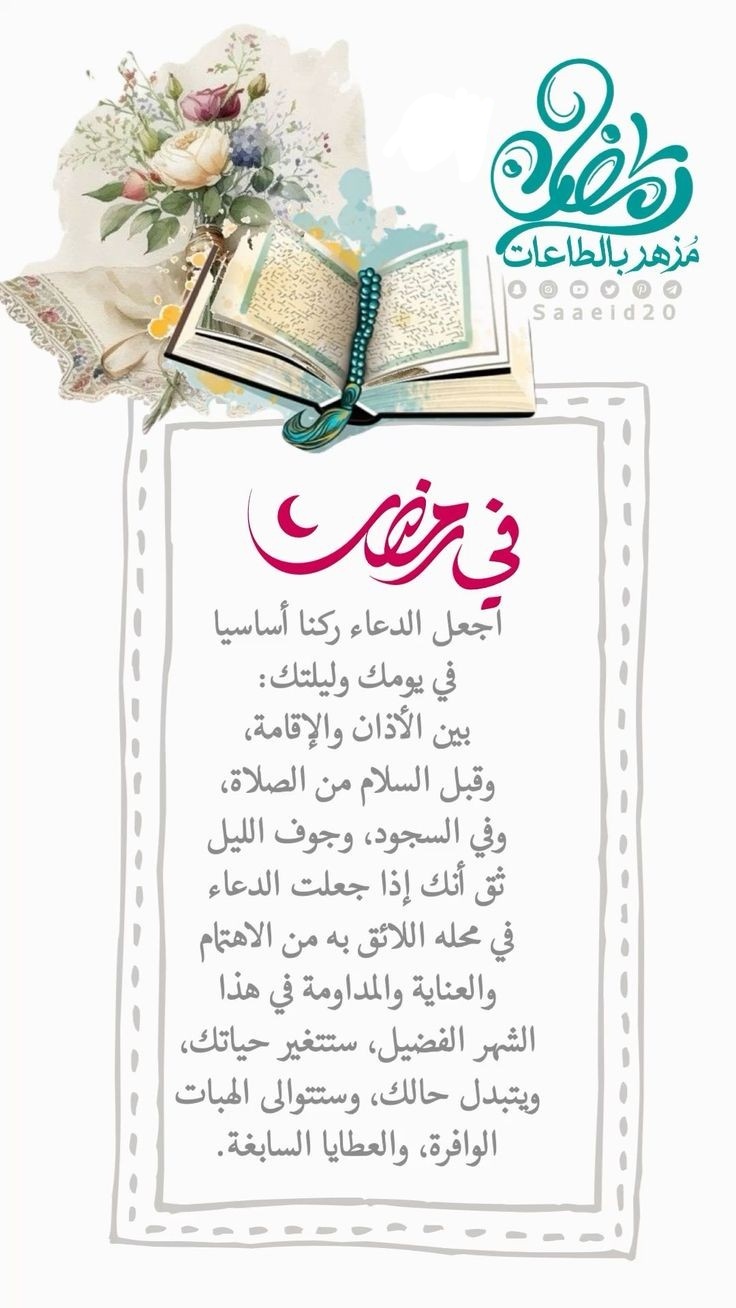 رمضان
مُزهر بالطاعات
Saaeid20
في رمضان
اجعل الدعاء ركنا أساسيا
في يومك وليلتك:
بين الأذان والإقامة،
وقبل السلام من الصلاة،
وفي السجود، وجوف الليل
ثق أنك إذا جعلت الدعاء
في محله اللائق به من الاهتمام
والعناية والمداومة في هذا
الشهر الفضيل، ستتغير حياتك،
ويتبدل حالك، وستتوالى الهبات
الوافرة، والعطايا السابغة.